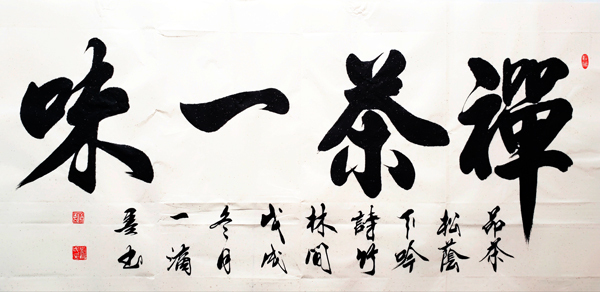 禪茶一味
品茶
松蔭
下吟
詩竹
林間
戊戌
冬月
一滴
墨书